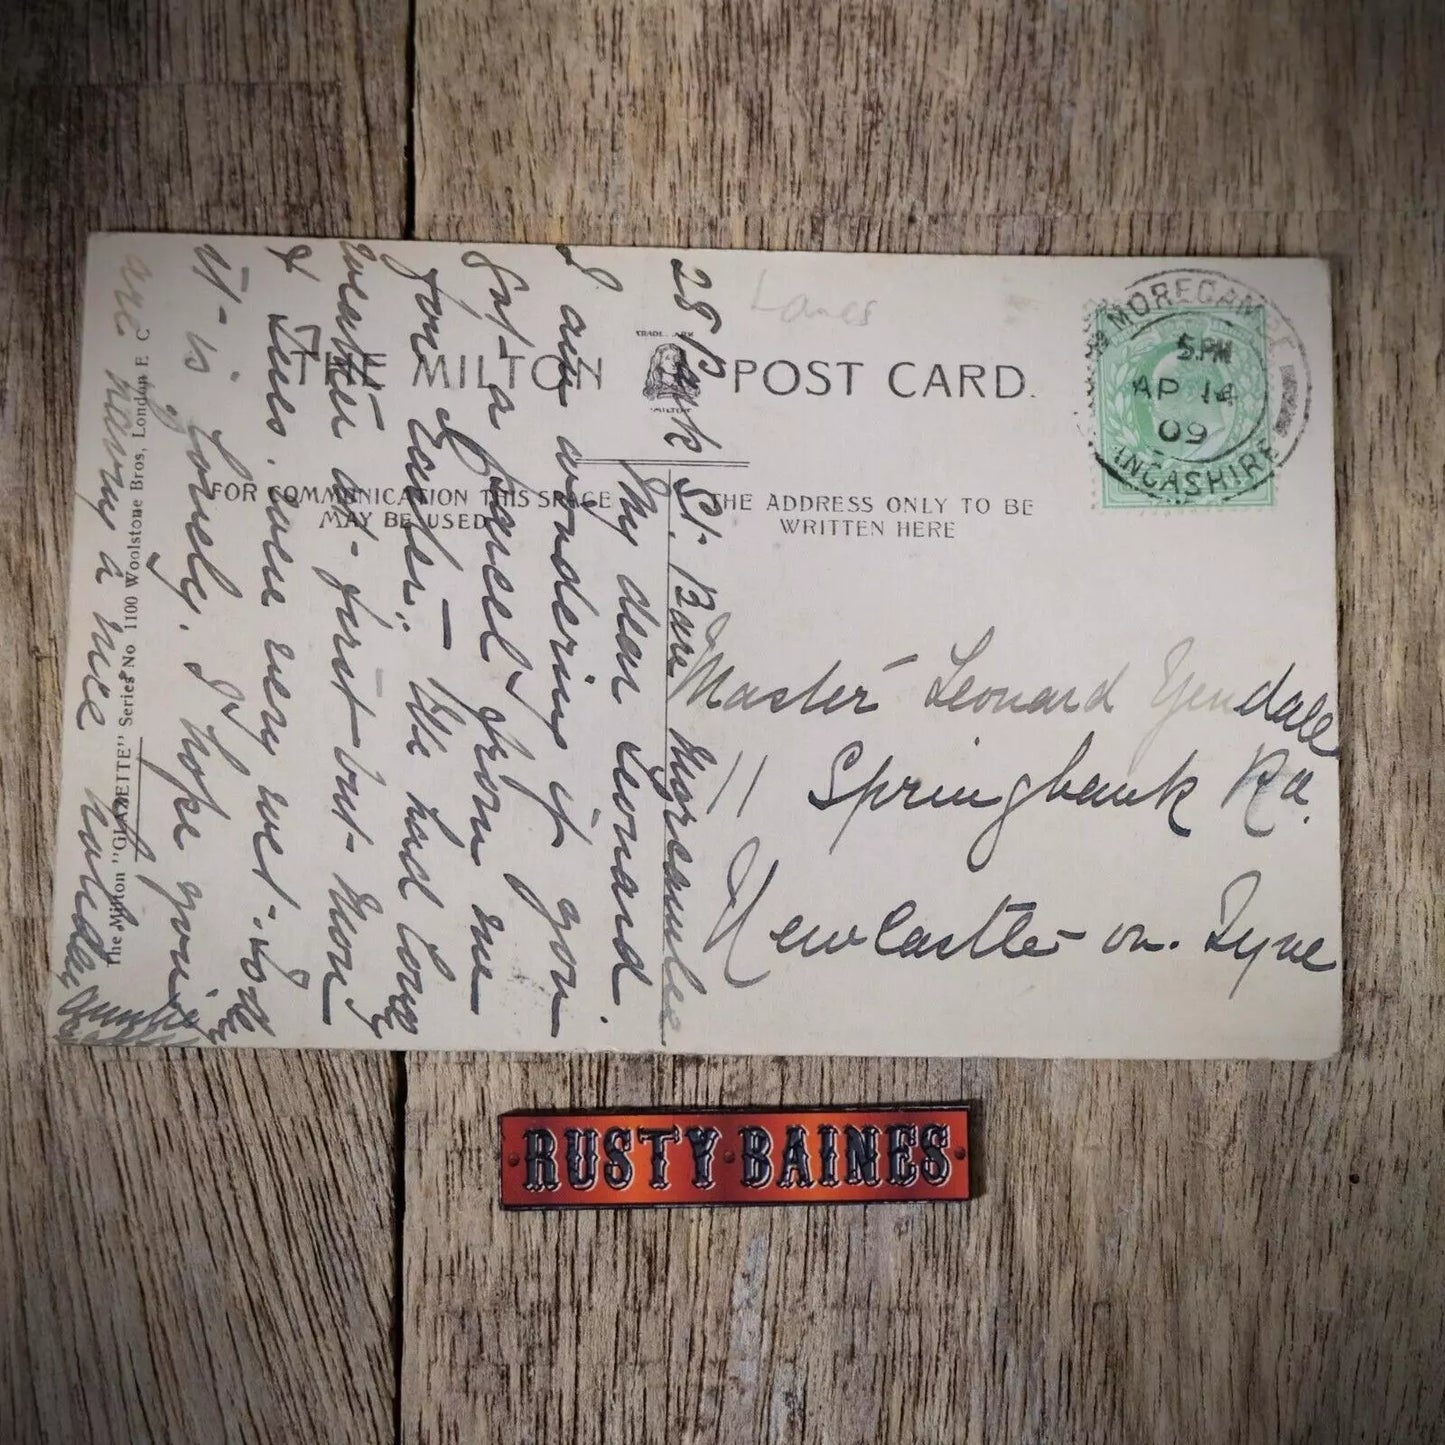 Lancs
THE MILTON
TRADE MARK
MILTON
POST CARD.
FOR COMMUNICATION THIS SPACE
MAY BE USED
THE ADDRESS ONLY TO BE
WRITTEN HERE
MORECAMBE
5.PM
AP 14
09
LANCASHIRE
28 Park St. Bare Morecambe
My dear Leonard.
I am wondering if you
Got a parcel from me
for Easter. We had lovely
weather at first but Mon
& Tues. were very wet. Today
it is lovely. I hope you
are having a nice holiday
Master Leonard Yendall
11 Springbank Rd.
Newcastle on. Tyne
The Milton "GLAZETTE" Series No 1100 Woolstone Bros, London E C
RUSTY BAINES